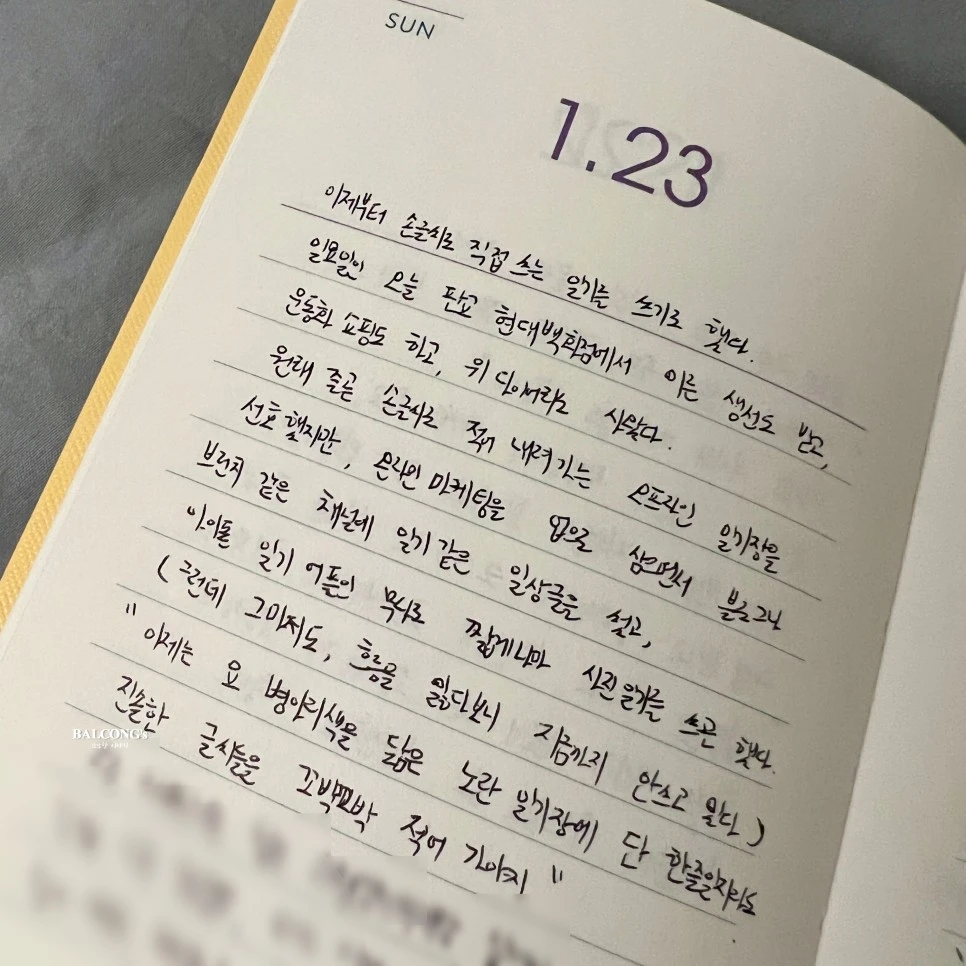 SUN
1.23
이제부터 손글씨로 직접 쓰는 일기를 쓰기로 했다.
일요일인 오늘 판교 현대백화점에서 이른 생선도 받고,
운동화 쇼핑도 하고, 위 다이어리도 사왔다.
원래 줄곧 손글씨로 적어 내려가는 오프라인 일기장을
선호했지만, 온라인 마케팅을 업으로 삼으면서 블로그나
브런치 같은 채널에 일기 같은 일상글을 썼고,
아이폰 일기 어플인 목시로 짧게나마 사진일기를 쓰곤 했다.
(그런데 그마저도, 흐름을 잃다보니 지금까지 안쓰고 말다)
"이제는 요 병아리색을 닮은 노란 일기장에 단 한줄일지라도
진솔한 글씨들을 꼬박꼬박 적어 가야지"
BALCONG's